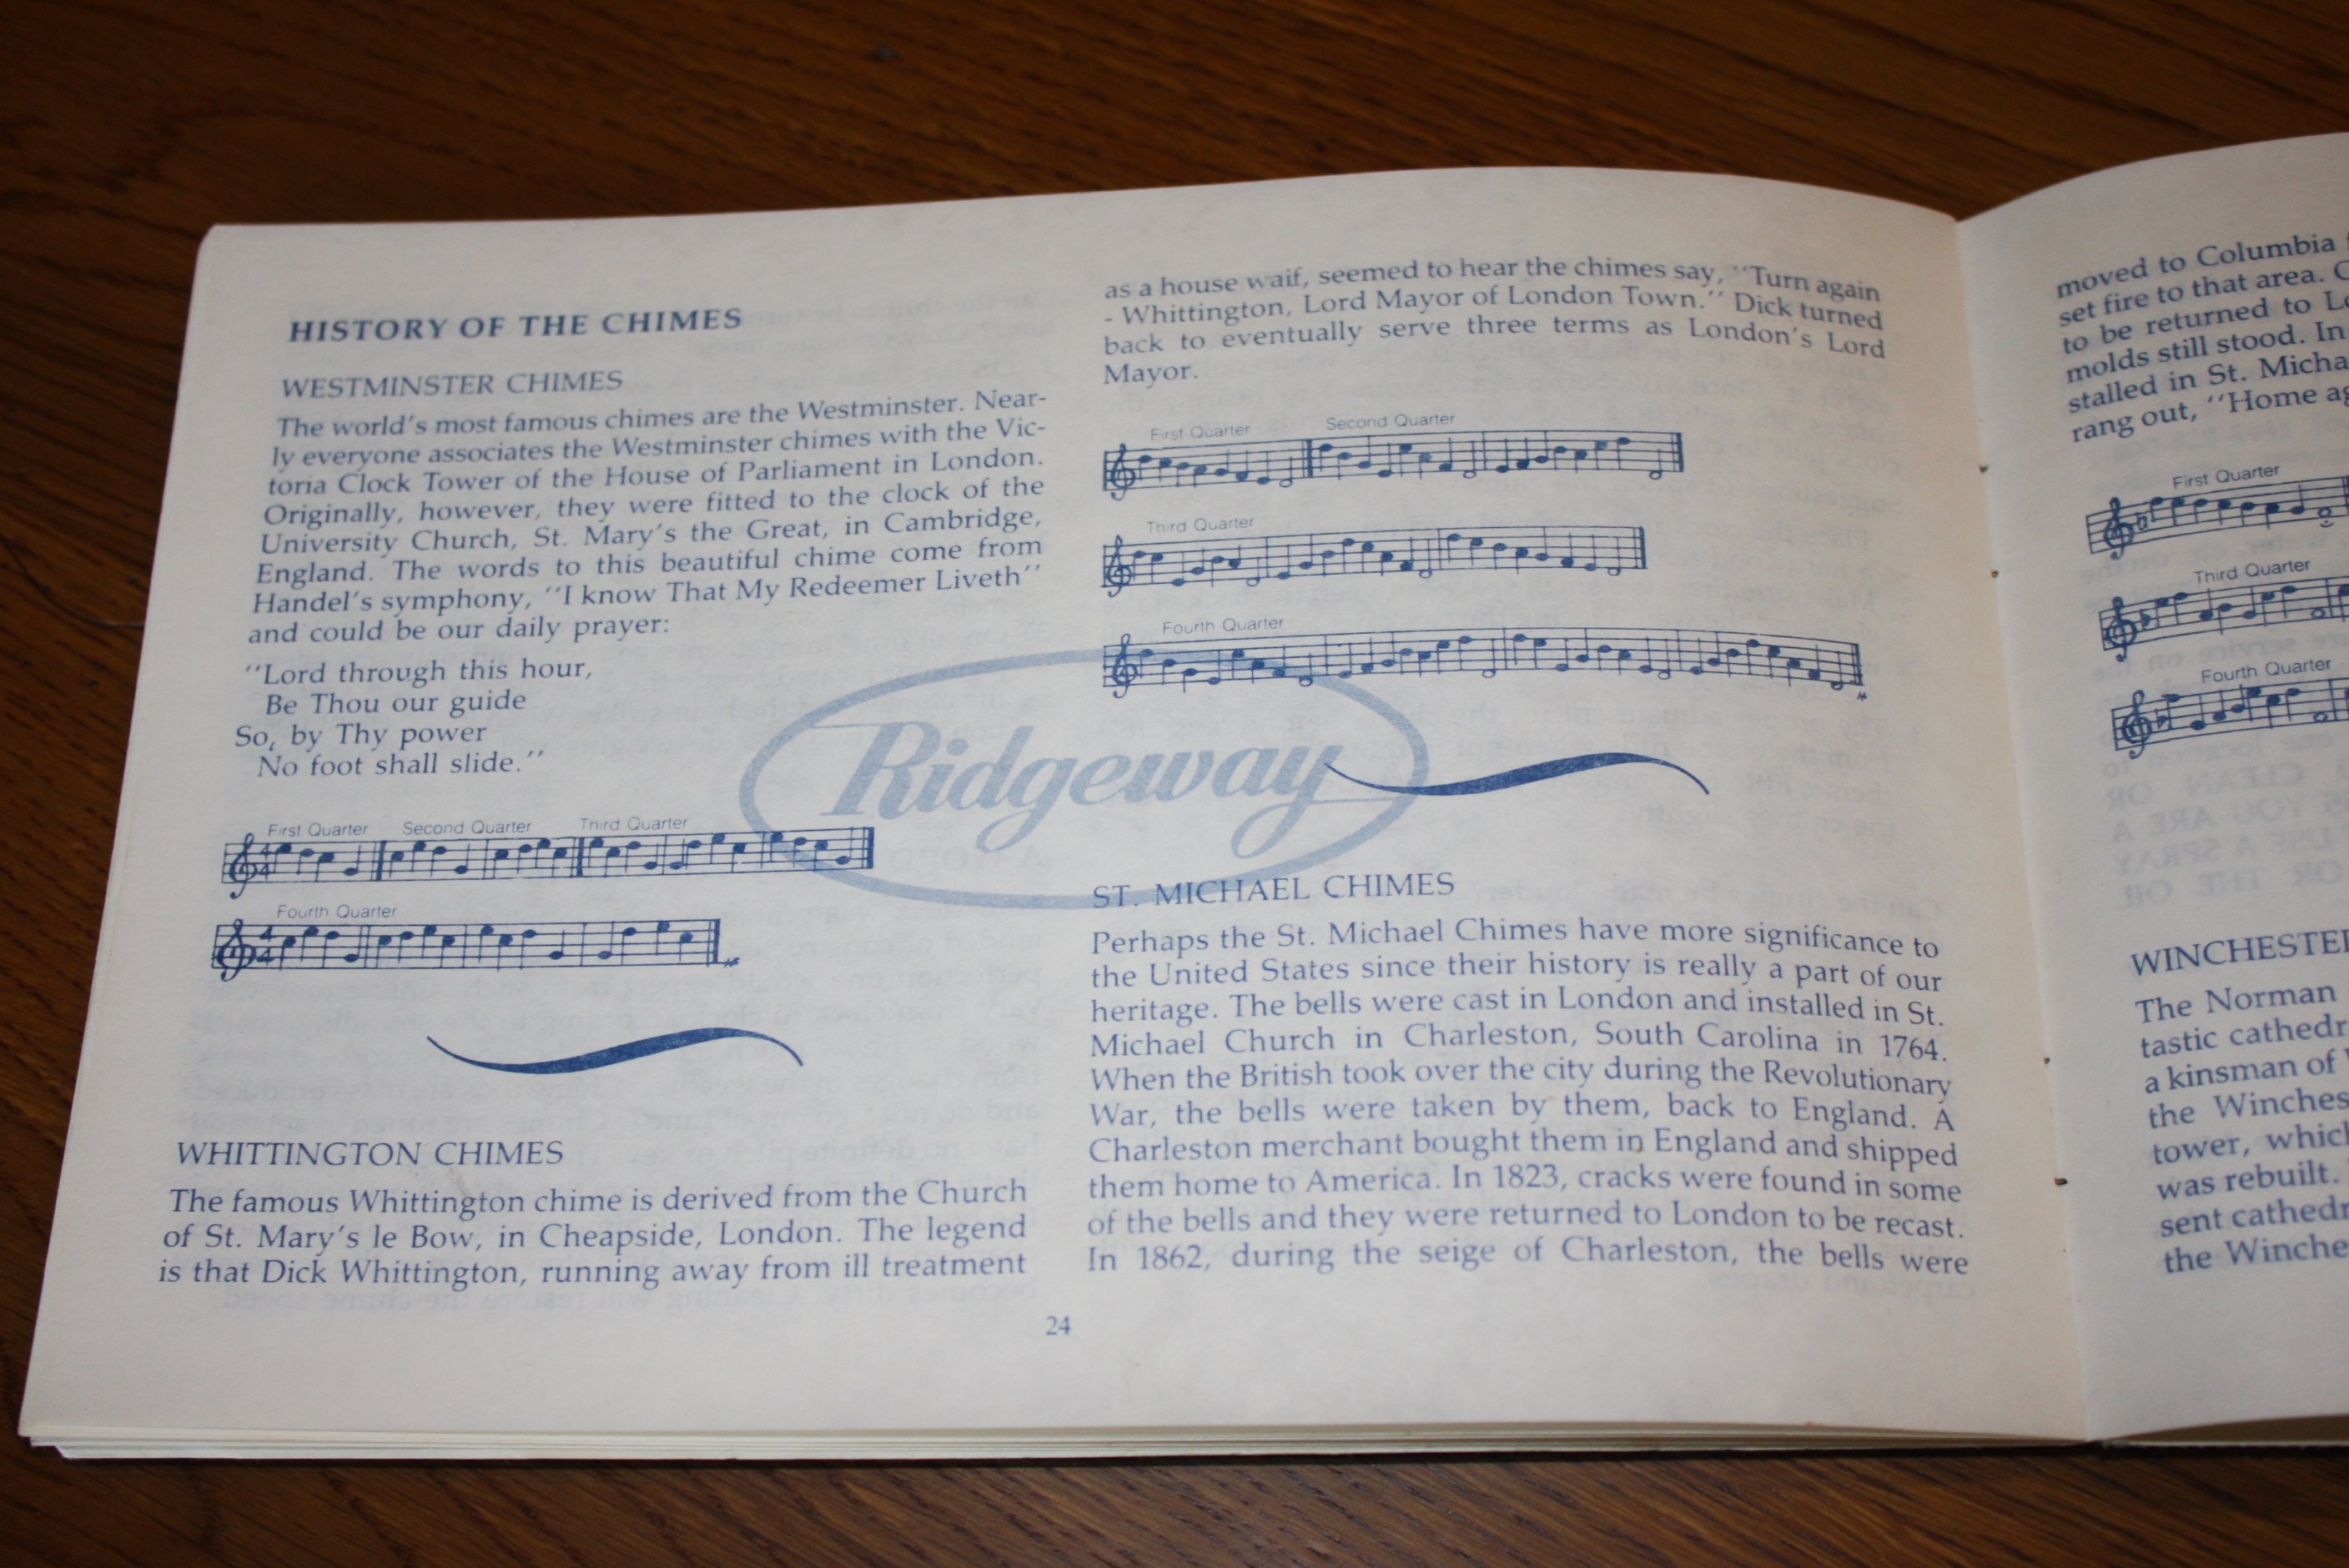 HISTORY OF THE CHIMES
WESTMINSTER CHIMES
The world's most famous chimes are the Westminster. Near-
ly everyone associates the Westminster chimes with the Vic-
toria Clock Tower of the House of Parliament in London.
Originally, however, they were fitted to the clock of the
University Church, St. Mary's the Great, in Cambridge,
England. The words to this beautiful chime come from
Handel's symphony, "I know That My Redeemer Liveth"
and could be our daily prayer:
"Lord through this hour,
Be Thou our guide
So, by Thy power
No foot shall slide."
First Quarter Second Quarter Third Quarter
4
4
Fourth Quarter
4
4
WHITTINGTON CHIMES
The famous Whittington chime is derived from the Church
of St. Mary's le Bow, in Cheapside, London. The legend
is that Dick Whittington, running away from ill treatment
as a house waif, seemed to hear the chimes say, "Turn again
- Whittington, Lord Mayor of London Town." Dick turned
back to eventually serve three terms as London's Lord
Mayor.
First Quarter Second Quarter
Third Quarter
Fourth Quarter
Ridgeway
ST. MICHAEL CHIMES
Perhaps the St. Michael Chimes have more significance to
the United States since their history is really a part of our
heritage. The bells were cast in London and installed in St.
Michael Church in Charleston, South Carolina in 1764.
When the British took over the city during the Revolutionary
War, the bells were taken by them, back to England. A
Charleston merchant bought them in England and shipped
them home to America. In 1823, cracks were found in some
of the bells and they were returned to London to be recast.
In 1862, during the seige of Charleston, the bells were
24
moved to Columbia
set fire to that area.
to be returned to
molds still stood. In
stalled in St. Micha
rang out, "Home
First Quarter
Third Quarter
Fourth Quarter
WINCHESTE
The Norman
tastic cathedr
a kinsman of
the Winches
tower, which
was rebuilt.
sent cathedr
the Winche